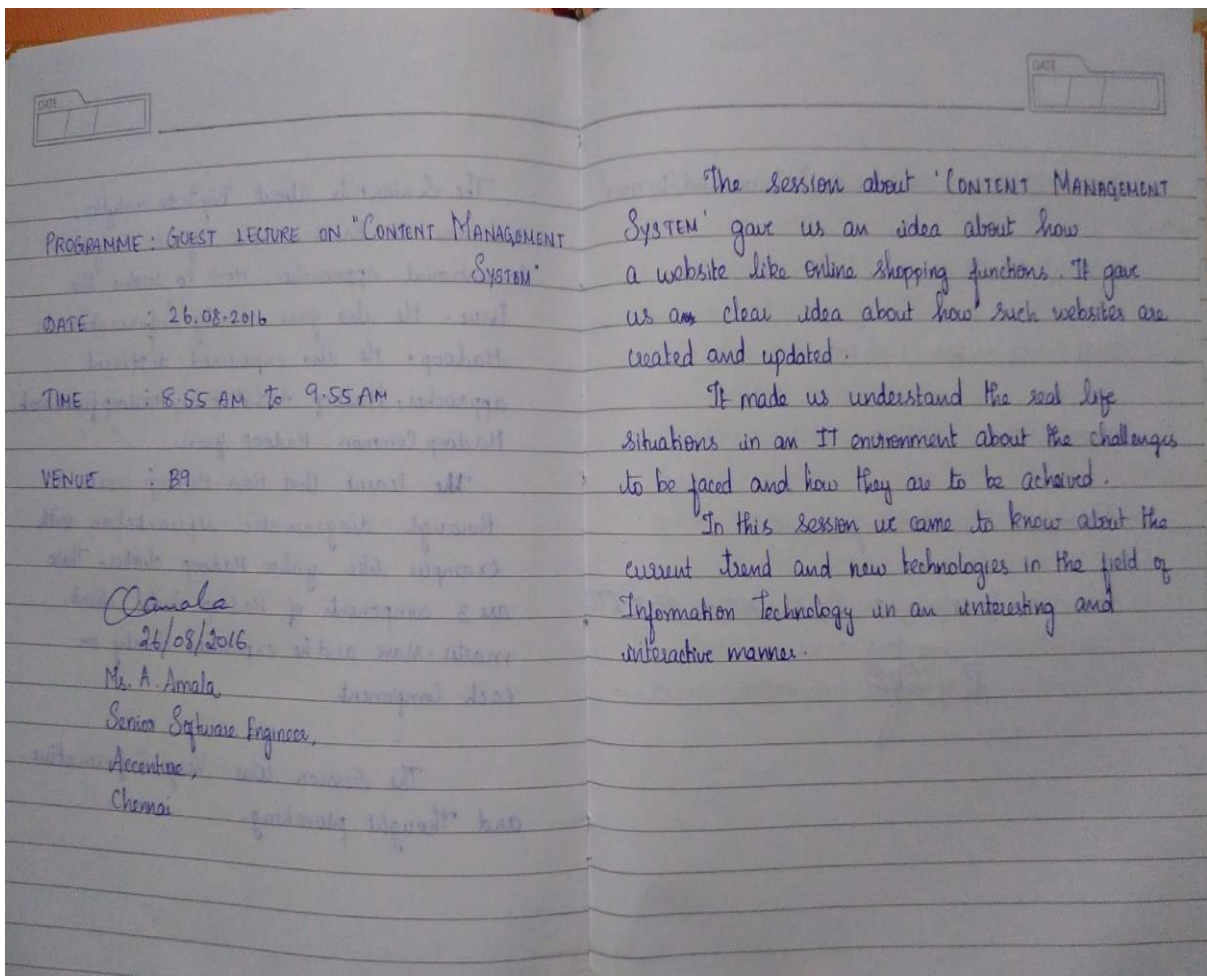 DATE
PROGRAMME : GUEST LECTURE ON "CONTENT MANAGEMENT
SYSTEM"
DATE : 26.08.2016
TIME : 8.55 AM to 9.55 AM
VENUE : B9
26/08/2016
Ms. A. Amala,
Senior Software Engineer,
Accenture,
Chennai
DATE
The session about 'CONTENT MANAGEMENT
SYSTEM' gave us an idea about how
a website like online shopping functions. It gave
us clear idea about how such websites are
created and updated.
It made us understand the real life
situations in an IT environment about the challenges
to be faced and how they are to be acheived.
In this session we came to know about the
current trend and new technologies in the field of
Information Technology in an interesting and
interactive manner.